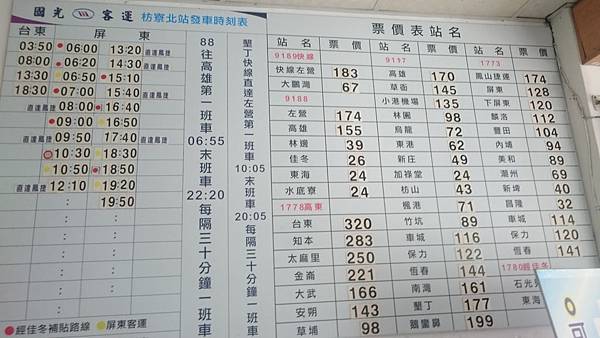 國光 客運 枋寮北站發車時刻表
台東 屏東
03:50 06:00 13:20 直達鳳捷
08:00 06:20 14:30 直達鳳捷
13:30 06:50 15:10
18:30 07:00 15:40 直達鳳捷
直達鳳捷 08:00 16:40
09:00 16:50
直達鳳捷 09:50 17:40 直達鳳捷
10:30 18:30
10:50 18:50
直達鳳捷 12:10 19:20
19:50
經佳冬補貼路線 屏東客運
88往高雄第一班車06:55末班車22:20每隔三十分鐘一班車
墾丁快線直達左營第一班車10:05末班車20:05每隔三十分鐘一班車
票價表站名
站名 票價 站名 票價 站名 票價
9189快線
快線左營 183
大鵬灣 67
9188
左營 174
高雄 155
林邊 39
佳冬 26
東海 24
水底寮 24
1778高東
台東 320
知本 283
太麻里 250
金崙 221
大武 166
安朔 143
草埔 98
9117
高雄 170
草衙 145
小港機場 135
林園 98
烏龍 72
東港 62
新庄 49
加祿堂 24
枋山 43
楓港 71
竹坑 89
車城 116
保力 122
恆春 144
南灣 161
墾丁 177
鵝鑾鼻 199
1773
鳳山捷運 174
屏東 128
下屏東 120
麟洛 112
豐田 104
內埔 94
美和 89
潮州 69
新埤 40
昌隆 32
車城 114
保力 120
恆春 141
1780經佳冬
石光
東海